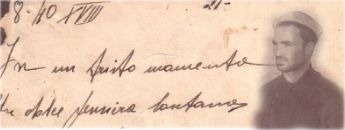 8-10 XVIII 21-
In un tristo momento
Un dolce pensiero lontano